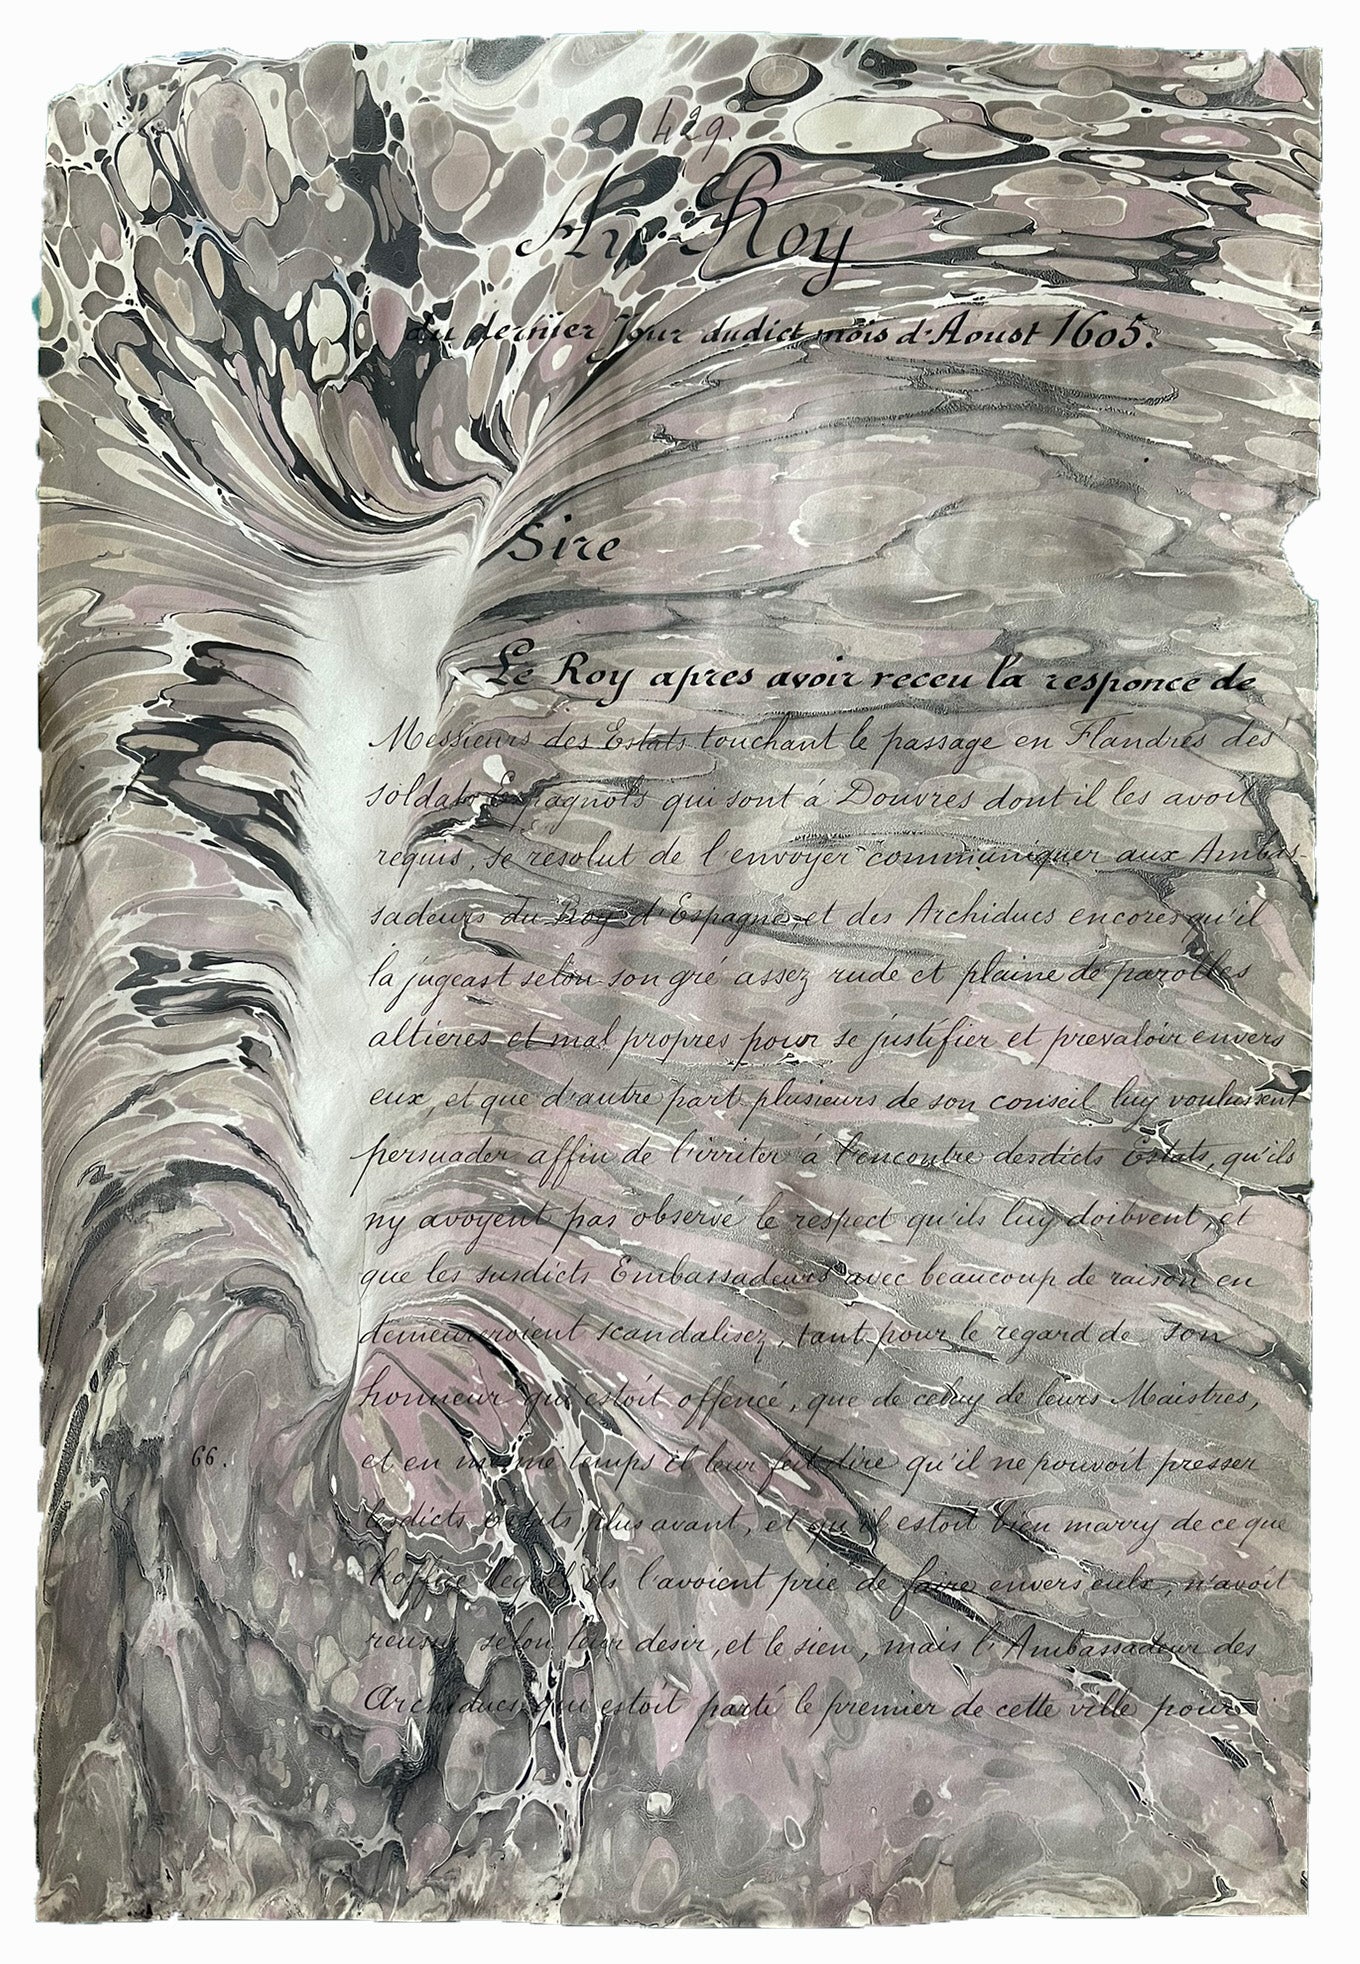 429.
Au Roy
du dernier Jour dudict mois d'Aoust 1605.
Sire
Le Roy apres avoir receu la responce de
Messieurs des Estats touchant le passage en Flandres des
soldats Espagnols qui sont á Douvres dont il les avoit
requis, se resolut de l'envoyer communiquer aux Ambas-
sadeurs du Roy d'Espagne, et des Archiducs encores qu'il
la jugeast selon son gré assez rude et plaine de parolles
altieres et mal propres pour se justifier et prevaloir envers
eux, et que d'autre part plusieurs de son conseil luy voulussent
persuader affin de l'irriter á l'encontre desdicts Estats, qu'ils
ny avoyent pas observé le respect qu'ils luy doibvent, et
que les susdicts Embassadeurs avec beaucoup de raison en
demeureroient scandalisez, tant pour le regard de son
honneur qui estoit offencé, que de celuy de leurs Maistres,
et en mesme temps il leur feit dire qu'il ne pouvoit presser
lesdicts Estats plus avant, et qu'il estoit bien marry de ce que
l'office lequel ils l'avoient prie de faire envers eulx, n'avoit
reussy selon leur desir, et le sien, mais l'Ambassadeur des
Archiducs qui estoit parti le premier de cette ville pour
66.